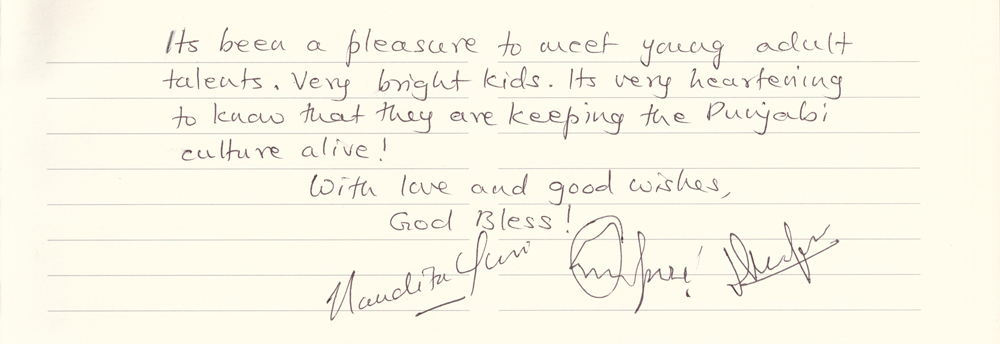 Its been a pleasure to meet young adult
talents. Very bright kids. Its very heartening
to know that they are keeping the Punjabi
culture alive!
With love and good wishes,
God Bless!
Nandita Puri